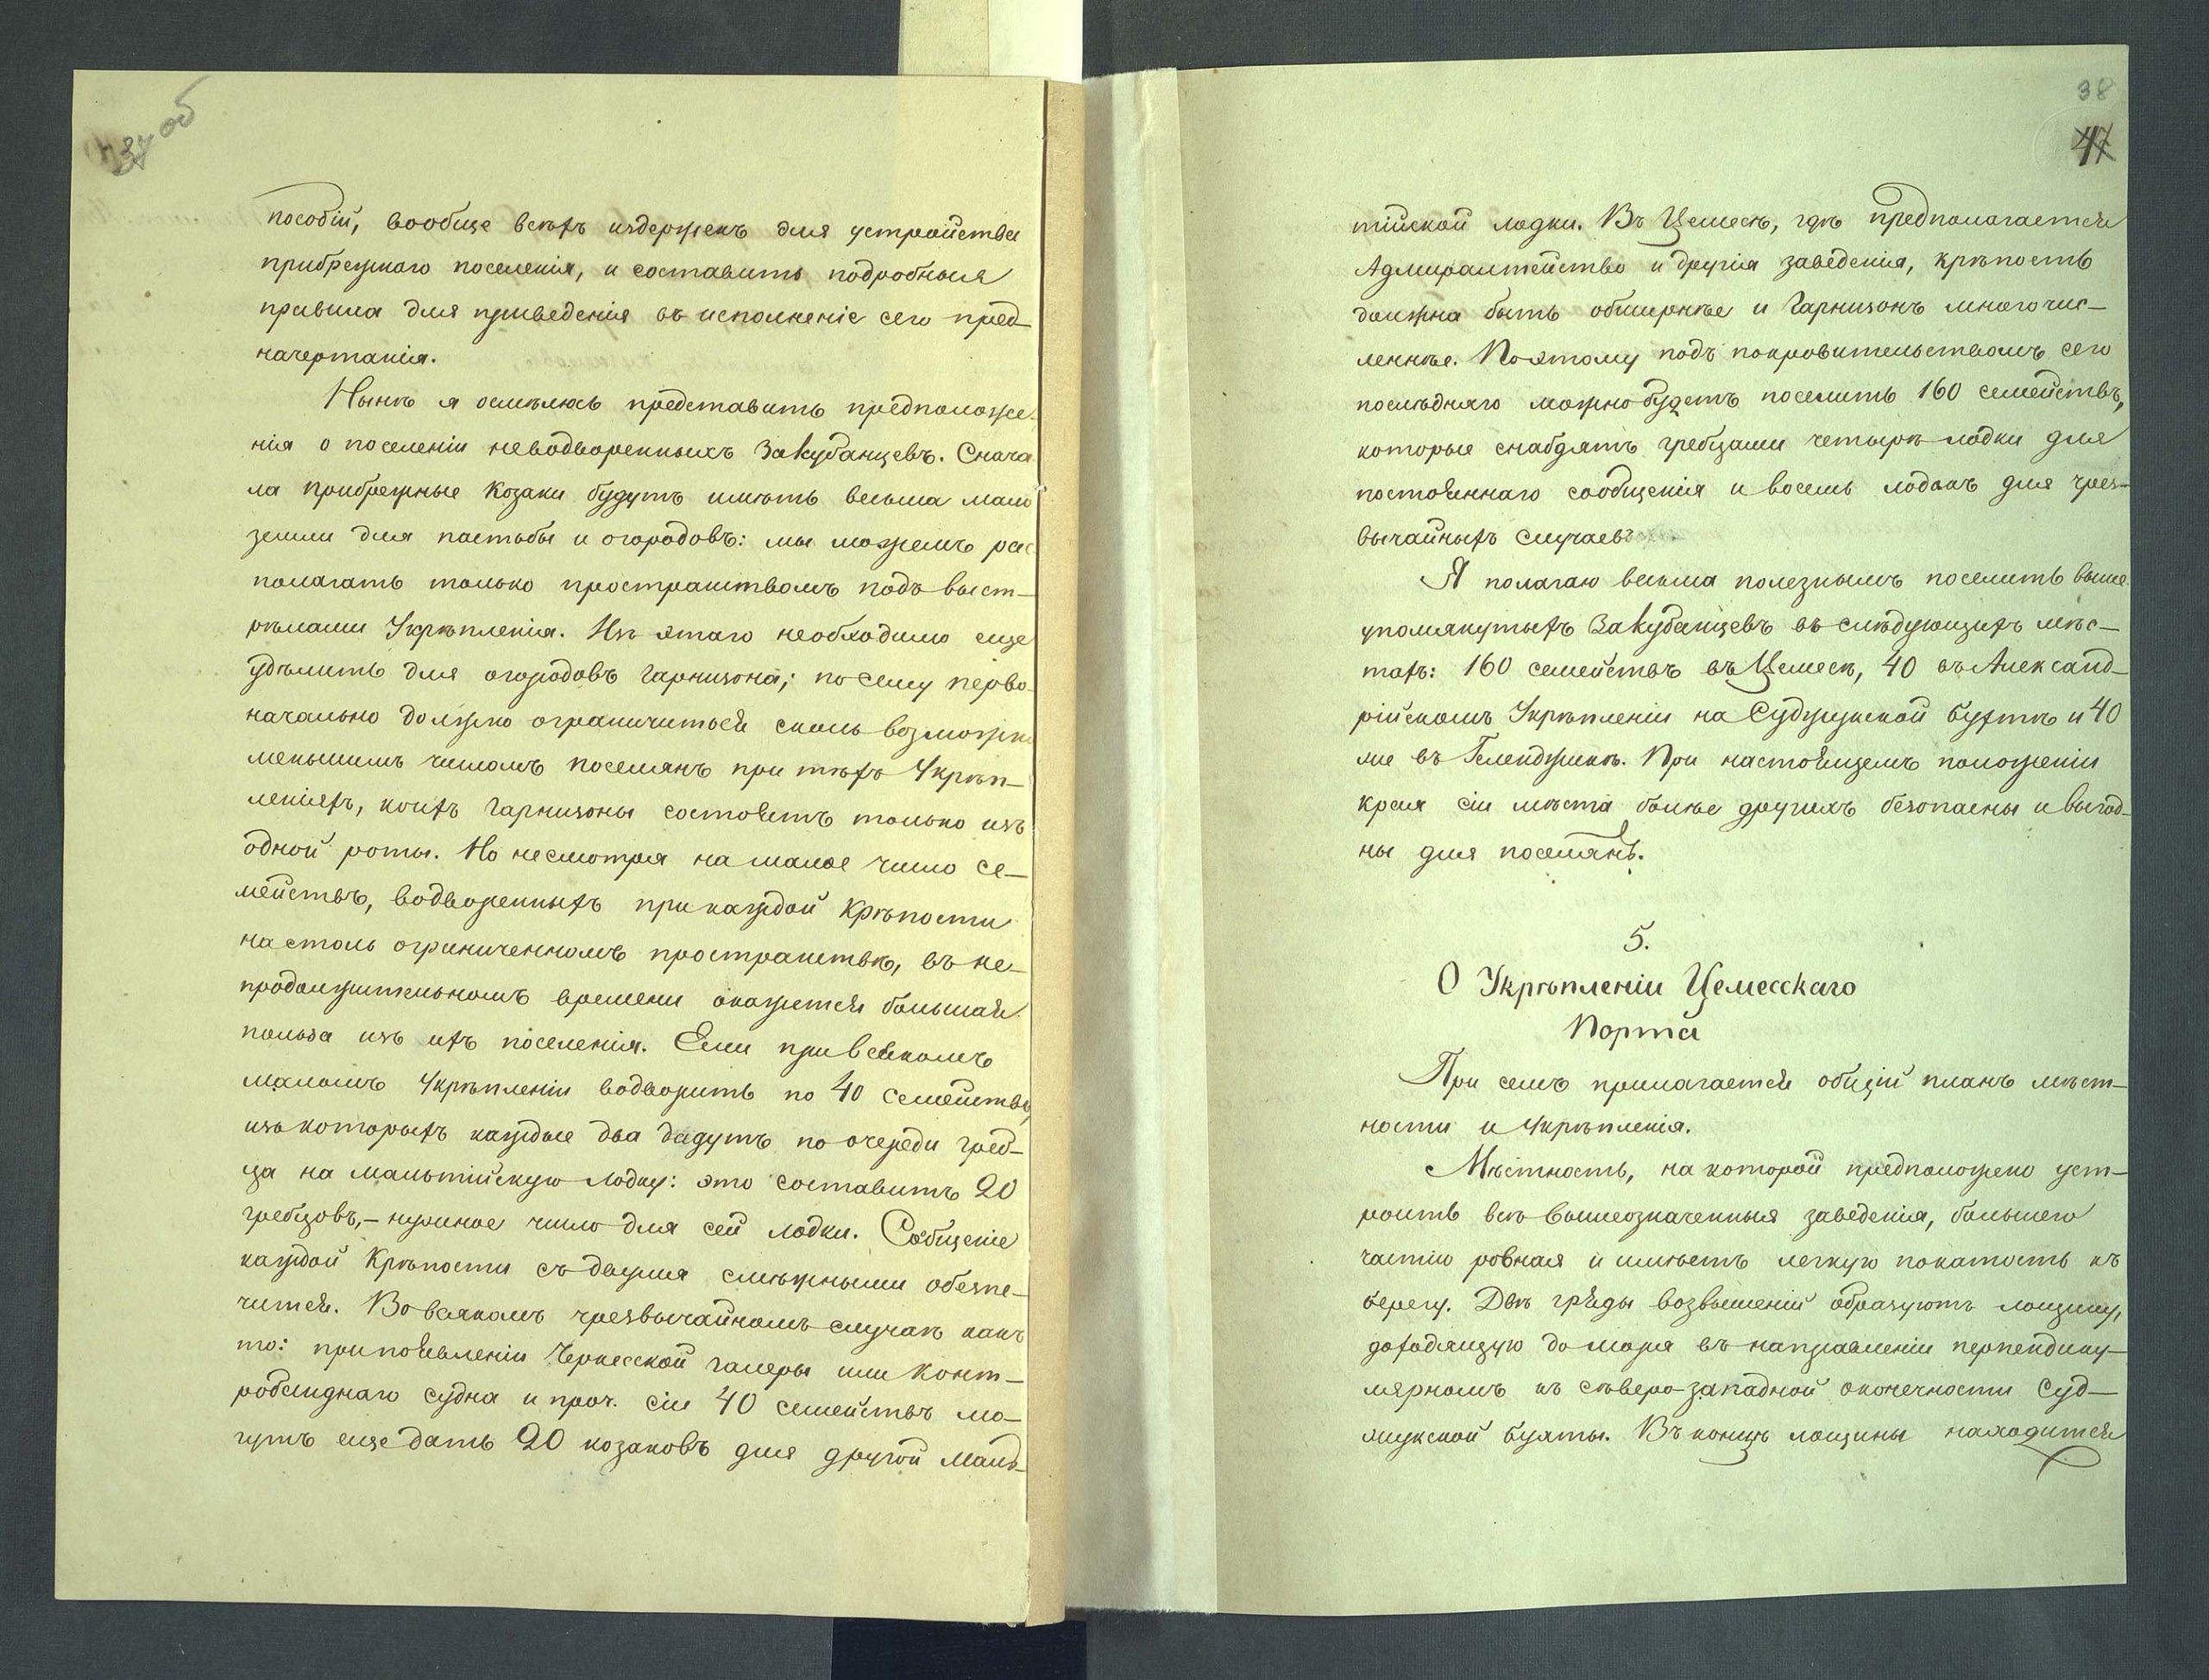 37 об
пособій, вообще всѣхъ издержекъ для устройства
прибрежнаго поселенія, и составить подробныя
правила для приведенія въ исполненіе сего пред-
начертанія.
Нынѣ я осмѣлюсь представить предположе-
нія о поселеніи неводворенныхъ Закубанцевъ. Снача
ла прибрежные Козаки будутъ имѣть весьма мало
земли для пастьбы и огородовъ: мы можемъ рас
полагать только пространствомъ подъ выст-
рѣлами Укрѣпленія. Изъ этаго необходимо еще
удѣлить для огородовъ гарнизона; по сему перво-
начально должно ограничиться сколь возможно
меньшимъ числомъ поселянъ при тѣхъ Укрѣп-
леніяхъ, коихъ гарнизоны состоятъ только изъ
одной роты. Но несмотря на малое число се-
мействъ, водворенныхъ при каждой Крѣпости
на столь ограниченномъ пространствѣ, въ не-
продолжительномъ времени окажется большая
польза изъ ихъ поселенія. Если при всякомъ
маломъ Укрѣпленіи водворить по 40 семействъ,
изъ которыхъ каждые два дадутъ по очереди греб-
ца на мальтійскую лодку: это составитъ 20
гребцовъ,- нужное число для сей лодки. Сообщеніе
каждой Крѣпости съ двумя смѣжными обезпе-
чится. Во всякомъ чрезвычайномъ случаѣ какъ
то: при появленіи Черкесской галеры или конт-
робанднаго судна и проч. сіи 40 семействъ мо-
гутъ еще дать 20 козаковъ для другой маль-
38
47
тійской лодки. Въ Цемесѣ, гдѣ предполагается
Адмиралтейство и другія заведенія, крѣпость
должна быть обширнѣе и Гарнизонъ многочис-
леннѣе. Поэтому подъ покровительствомъ сего
послѣдняго можно будетъ поселить 160 семействъ,
которые снабдятъ гребцами четыре лодки для
постояннаго сообщенія и восемь лодокъ для чрез-
вычайныхъ случаевъ.
Я полагаю весьма полезнымъ поселить выше
упомянутыхъ Закубанцевъ въ слѣдующихъ мѣс-
тахъ: 160 семействъ въ Цемесѣ, 40 въ Александ-
рійскомъ Укрѣпленіи на Суджукской бухтѣ и 40
же въ Геленджикѣ. При настоящемъ положеніи
края сіи мѣста болѣе другихъ безопасны и выгод-
ны для поселянъ.
5.
О Укрѣпленіи Цемесскаго
Порта
При семъ прилагается общій планъ мѣст-
ности и Укрѣпленія.
Мѣстность, на которой предположено уст-
роить всѣ вышеозначенныя заведенія, большею
частію ровная и имѣетъ легкую покатость къ
берегу. Двѣ гряды возвышеній образуютъ лощину,
доходящую до моря въ направленіи перпендику-
лярномъ къ сѣверо-западной оконечности Суд-
жукской бухты. Въ концѣ лощины находится